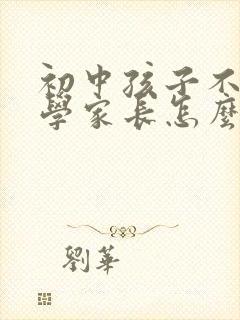 初中孩子不
學家長怎麼
劉華